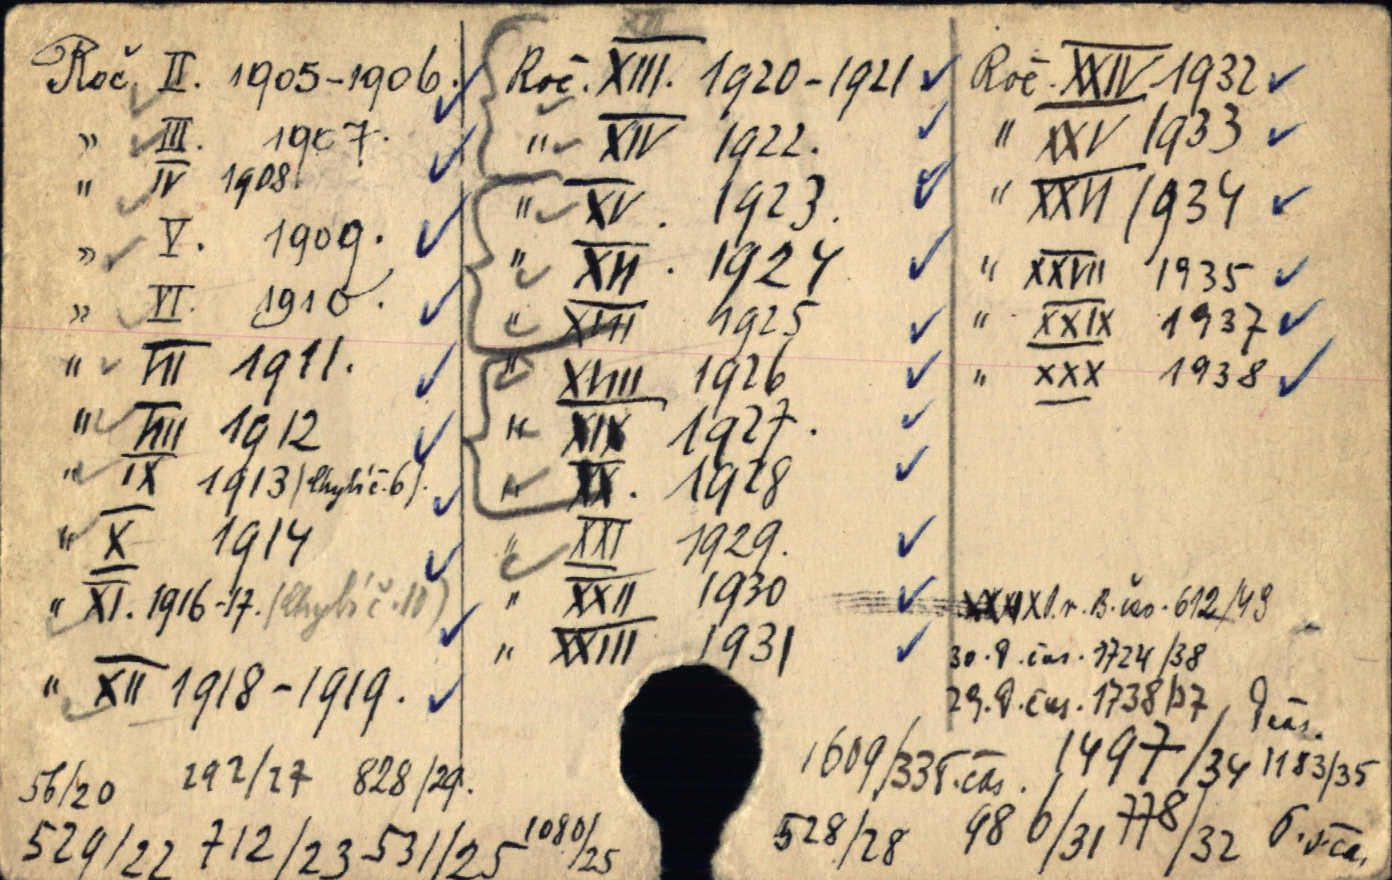 Roč. II. 1905-1906.
" III. 1907.
" IV 1908.
" V. 1909.
" VI. 1910.
" VII 1911.
" VIII 1912
" IX 1913 (Chybí č. 6).
" X 1914
" XI. 1916-17. (Chybí č. 10)
" XII 1918-1919.
Roč. XIII. 1920-1921
" XIV 1922.
" XV. 1923.
" XVI. 1924
" XVII 1925
" XVIII 1926
" XIX 1927.
" XX. 1928
" XXI 1929.
" XXII 1930
" XXIII 1931
Roč. XXIV 1932
" XXV 1933
" XXVI 1934
" XXVII 1935
" XXIX 1937
" XXX 1938
612/49
30. čas. 1724/38
29. čas. 1738/37
56/20 292/27 828/29.
1609/33 čas. 1497/34 1183/35
529/22 712/23 531/25 1080/25 528/28 98 6/31 778/32